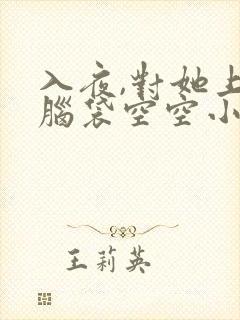 入夜,對她上
腦袋空空小
王莉英